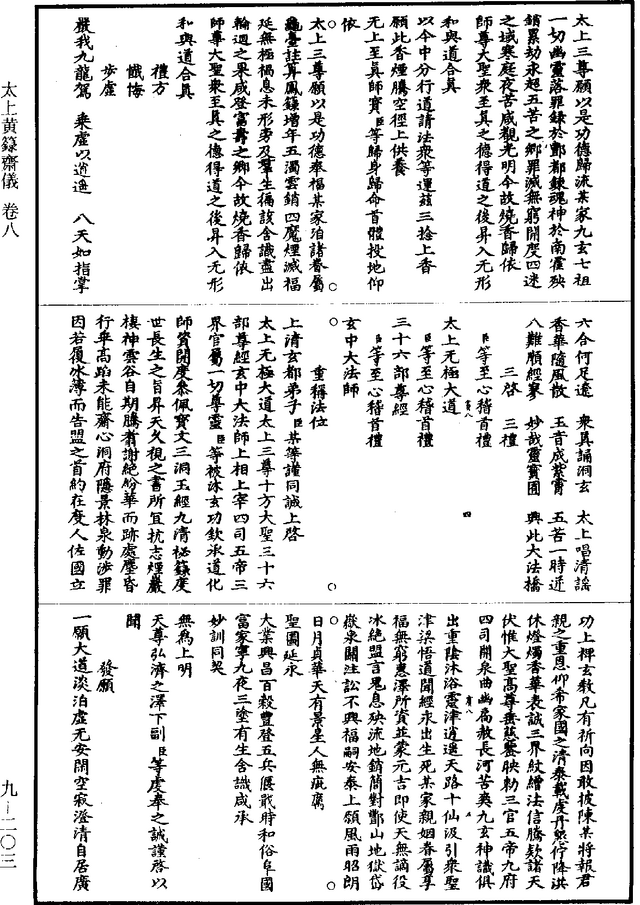 太上三尊願以是功德歸流某家九玄七祖
一切幽靈落罪錄於酆都鍊魂神於南霍殃
銷累劫永超五苦之鄉罪滅無窮開度四迷
之域寒庭夜苦咸覩光明今故燒香歸依
師尊大聖衆至真之德得道之後昇入无形
和與道合真
以今中分行道請法衆等運茲三捻上香
願此香煙騰空徑上供養
无上至真師寶臣等歸身歸命首體投地仰
依
太上三尊願以是功德奉福某家洎諸眷屬
龜臺註筭鳳籙增年五濁雲銷四魔煙滅福
延無極禍息未形旁及羣生徧該含識盡出
輪迴之果咸登富壽之鄉今故燒香歸依
師尊大聖衆至真之德得道之後昇入无形
和與道合真
禮方
懺悔
步虛
嚴我九龍駕 乘虛以逍遙 八天如指掌
六合何足遼 衆真誦洞玄 太上唱清謠
香華隨風散 玉音成紫霄 五苦一時迸
八難順經寥 妙哉靈寶囿 興此大法橋
三啓 三禮
臣等至心稽首禮
太上无極大道
臣等至心稽首禮
三十六部尊經
臣等至心稽首禮
玄中大法師
重稱法位
上清玄都弟子臣某等謹同誠上啓
太上无極大道太上三尊十方大聖三十六
部尊經玄中大法師上相上宰四司五帝三
界官屬一切尊靈臣等被沐玄功欽承道化
師資開度叅佩寶文三洞玉經九清祕籙度
世長生之旨昇天久視之書所宜抗志煙巖
棲神雲谷自期騰翥謝絕紛華而跡處塵昏
行乖高蹈未能齋心洞府隱景林泉動涉罪
因若履冰薄而告盟之首約在度人佐國立
功上裨玄教凡有祈向因敢披陳某將報君
親之重恩仰希家國之清泰載度丹懇佇降洪
休燈燭香華表誠三界紋繒法信騰欵諸天
伏惟大聖高尊垂慈鑒映勑三官五帝九府
四司開泉曲幽扃赦長河苦爽九玄神識俱
出重陰沐浴靈津逍遙天路十仙汲引衆聖
津梁悟道聞經永出生死某家親姻眷屬享
福無窮惠澤所資並蒙元吉即使天無謫役
冰絕盟言鬼息殃流地銷簡對酆山地獄岱
嶽東關注訟不興福嗣安泰上願風雨昭朗
日月貞華天有景星人無疵癘
聖圖延永
大業興昌百穀豐登五兵偃戢時和俗阜國
富家寧九夜三塗有生含識咸承
妙訓同契
無為上明
天尊弘濟之澤下副臣等虔奉之誠謹啓以
聞
發願
一願大道淡泊虛无安閑空寂澄清自居廣
太上黄籙齋儀 卷八
九—二〇三